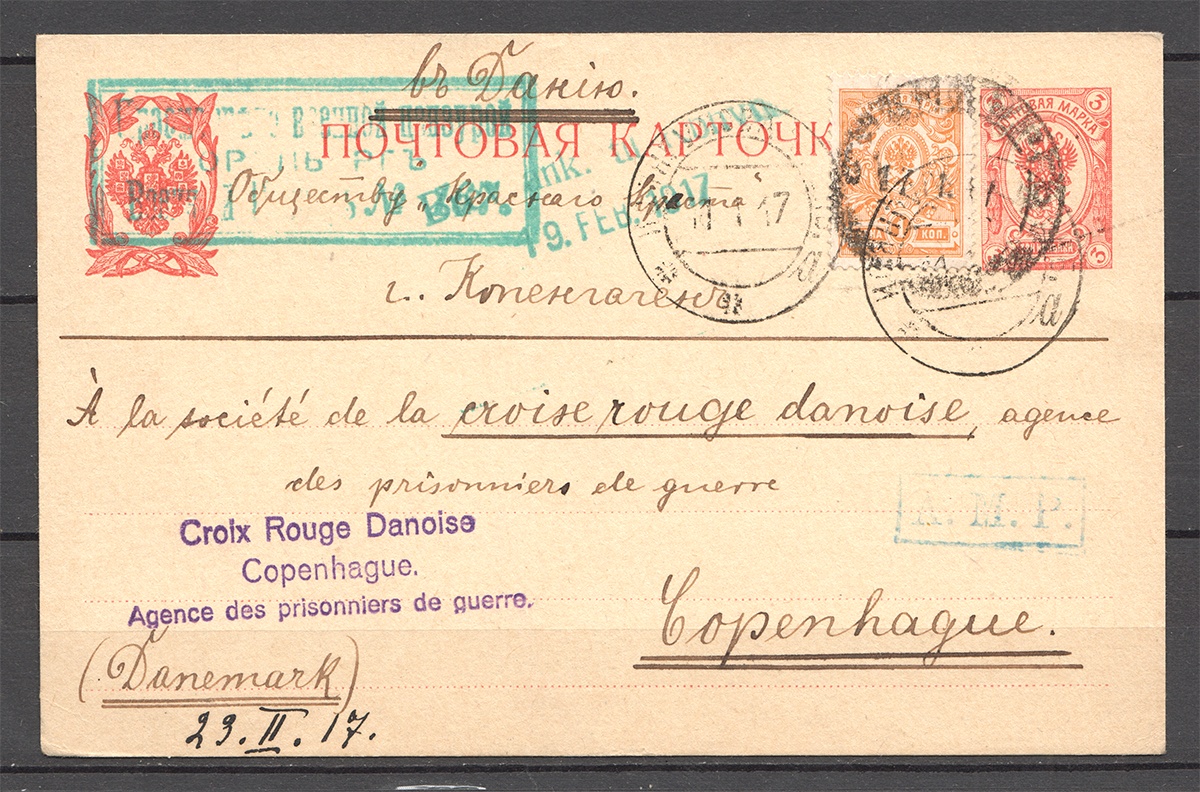 въ Данію.
ПОЧТОВАЯ КАРТОЧК
военной цензурой
Обществу „Краснаго Креста
№
Ank. 9. FEB. 1917
1 17
14 1 17
МАРКА
3
КОП.
г. Копенгагенъ
À la société de la croise rouge danoise, agence
des prisonniers de guerre
A. M. P.
Croix Rouge Danoise
Copenhague.
Agence des prisonniers de guerre.
Copenhague.
(Danemark)
23. II. 17.